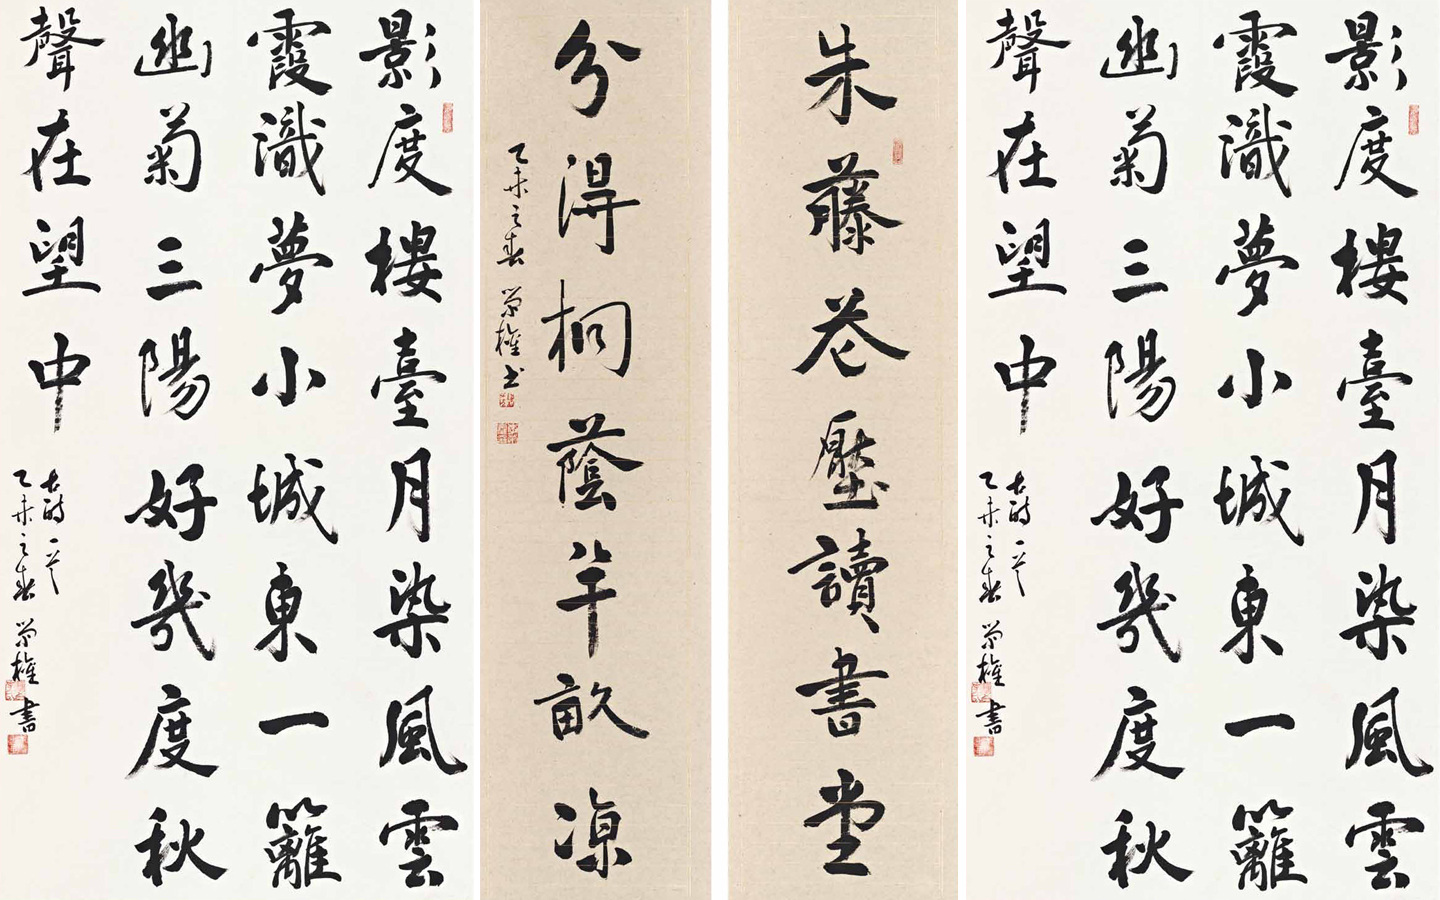 影度樓臺月染風雲
霞識夢小城東一籬
幽菊三陽好幾度秋
聲在望中
古詩一首
乙未之春 榮權書
朱藤苍壓讀書堂
分得桐蔭半畝涼
乙未之春 榮權書
影度樓臺月染風雲
霞識夢小城東一籬
幽菊三陽好幾度秋
聲在望中
古詩一首
乙未之春 榮權書